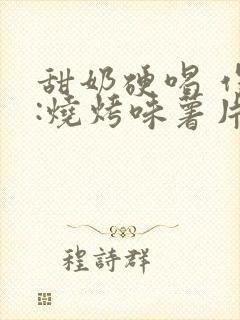 甜奶硬唱
:燒烤味薯片
程詩群